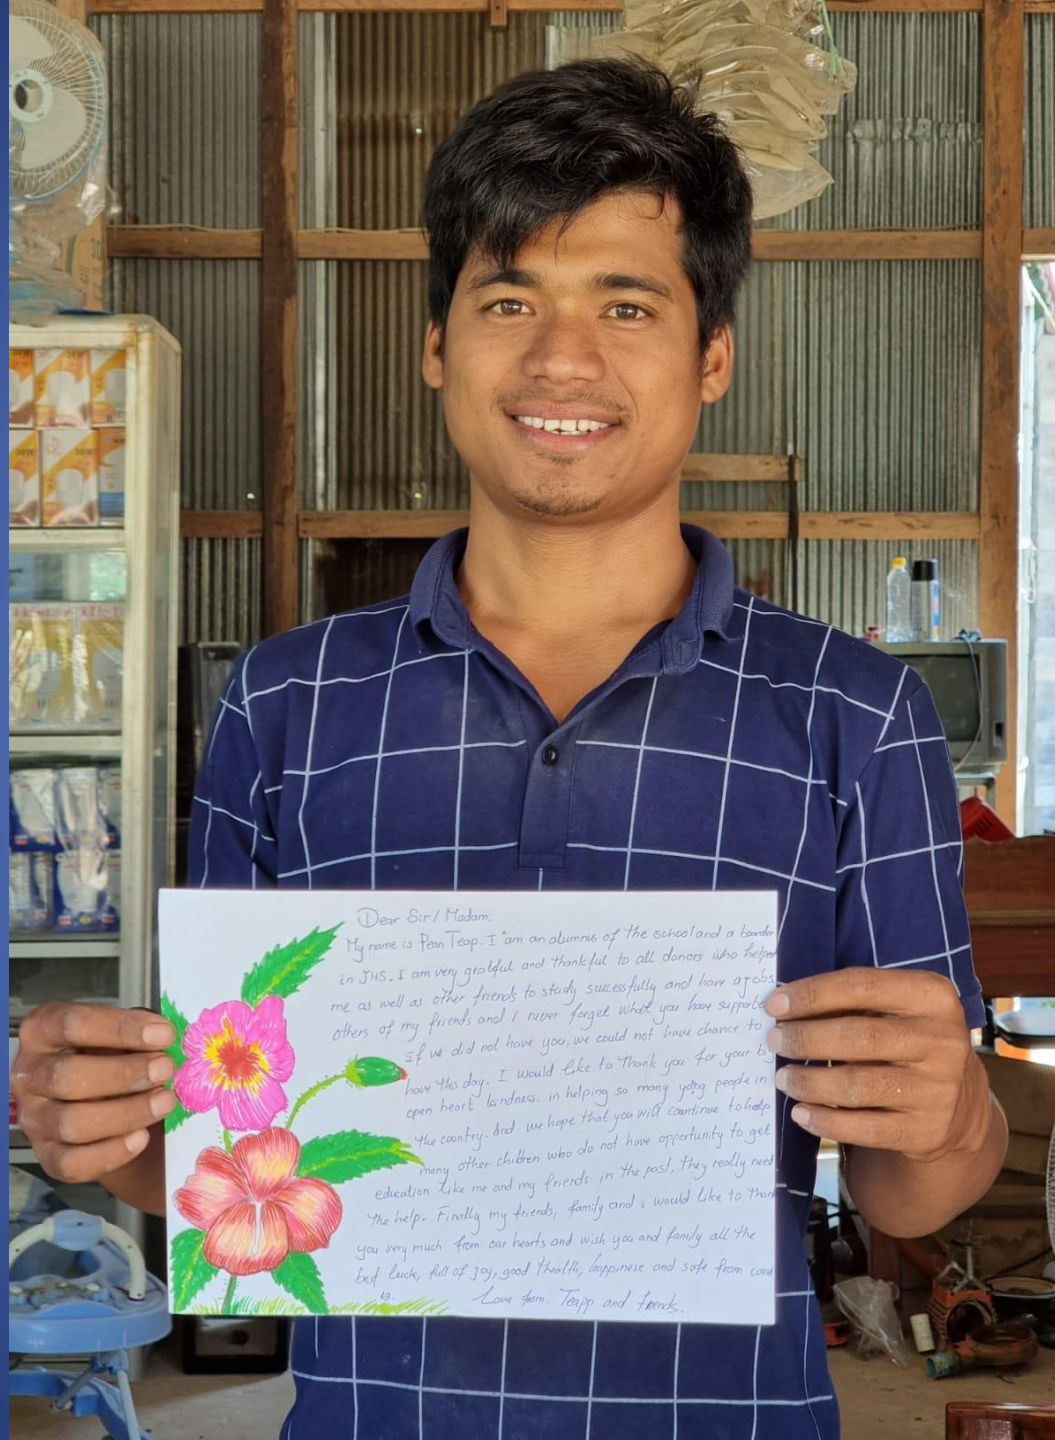 Dear Sir / Madam.
My name is Pean Teap. I am an alumnus of the school and a boarder
in JHS. I am very grateful and thankful to all donors who helped
me as well as other friends to study successfully and have a jobs
others of my friends and I never forget what you have supported
If we did not have you, we could not have chance to
have this day. I would like to thank you for your big
open heart kindness. in helping so many yong people in
the country. And we hope that you will countinue to help
many other children who do not have opportunity to get
education like me and my friends in the past, they really need
the help. Finally my friends, family and i would like to thank
you very much from our hearts and wish you and family all the
best luck, full of joy, good health, happinese and safe from covid
19. Love from. Teapp and friends.
30W
30W